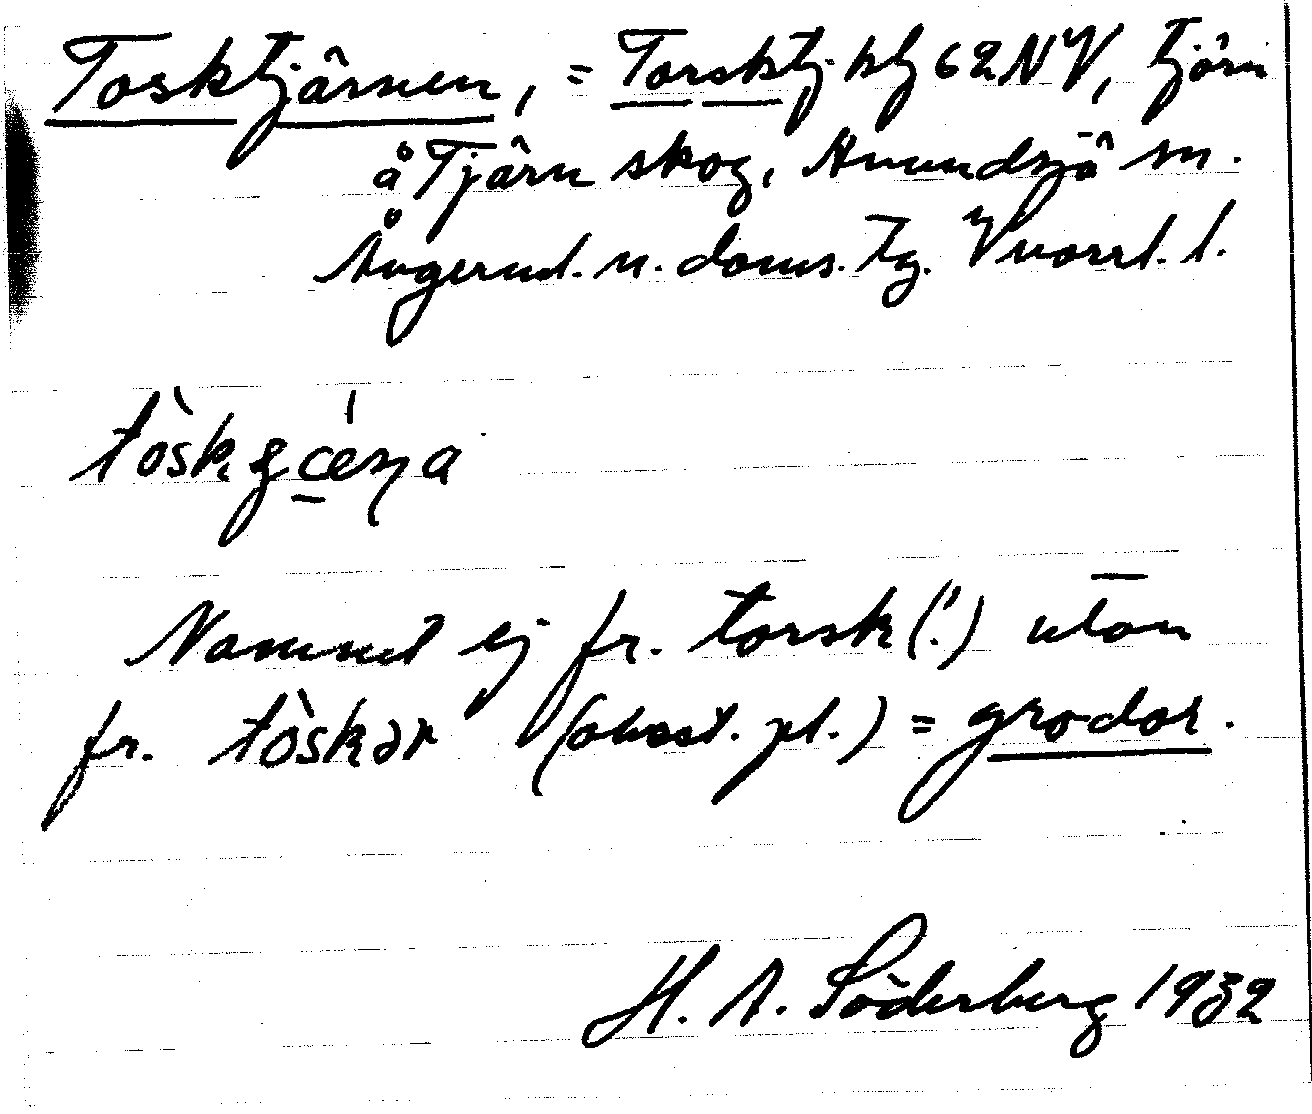 Tosktjärnen, = Torsktj. blj 62 NV, tjärn
å Tjärn skog, Anundsjö sn.
Ångerml. n. doms. Tg. Vnorrl. l.
tòskʒœ́ɳa
Namnet ej fr. torsk (!) utan
fr. tòskər (obest. pl.) = grodor.
H. A. Söderberg 1932